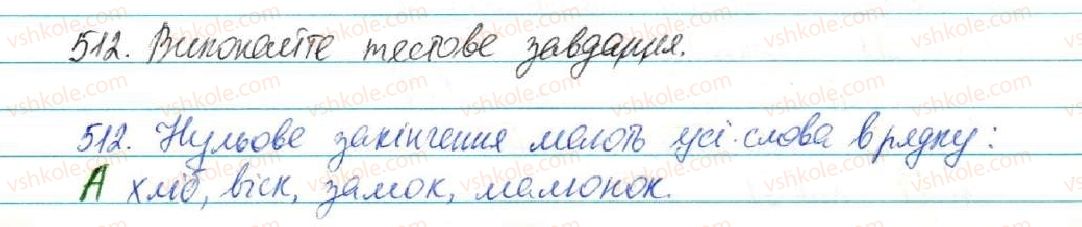 512. Виконайте тестове завдання.
512. Нульове закінчення мають усі слова в рядку:
А хліб, віск, замок, малюнок.